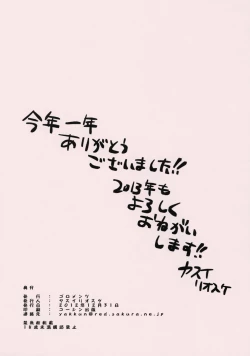 今年一年
ありがとう
ございました!!
2013年も
よろしく
おねがい
します!!
ヤスイ
リオスケ
奥付
発行:ゴロメンツ
発行人:ヤスイリオスケ
発行日:2012年12月31日
印刷:コーシン出版
連絡先:yakkun@red.sakura.ne.jp